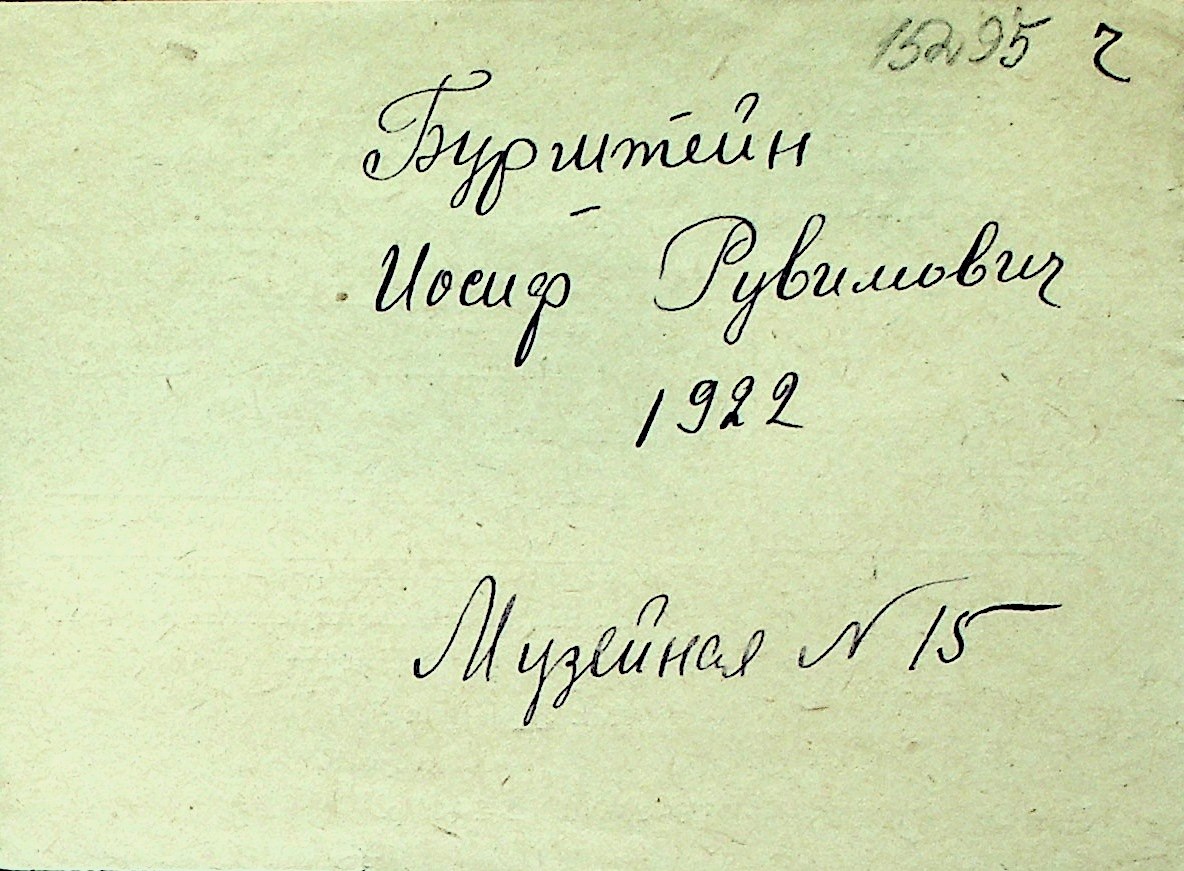 15295 ч
Бурштейн
Иосиф Рувимович
1922
Музейная N 15